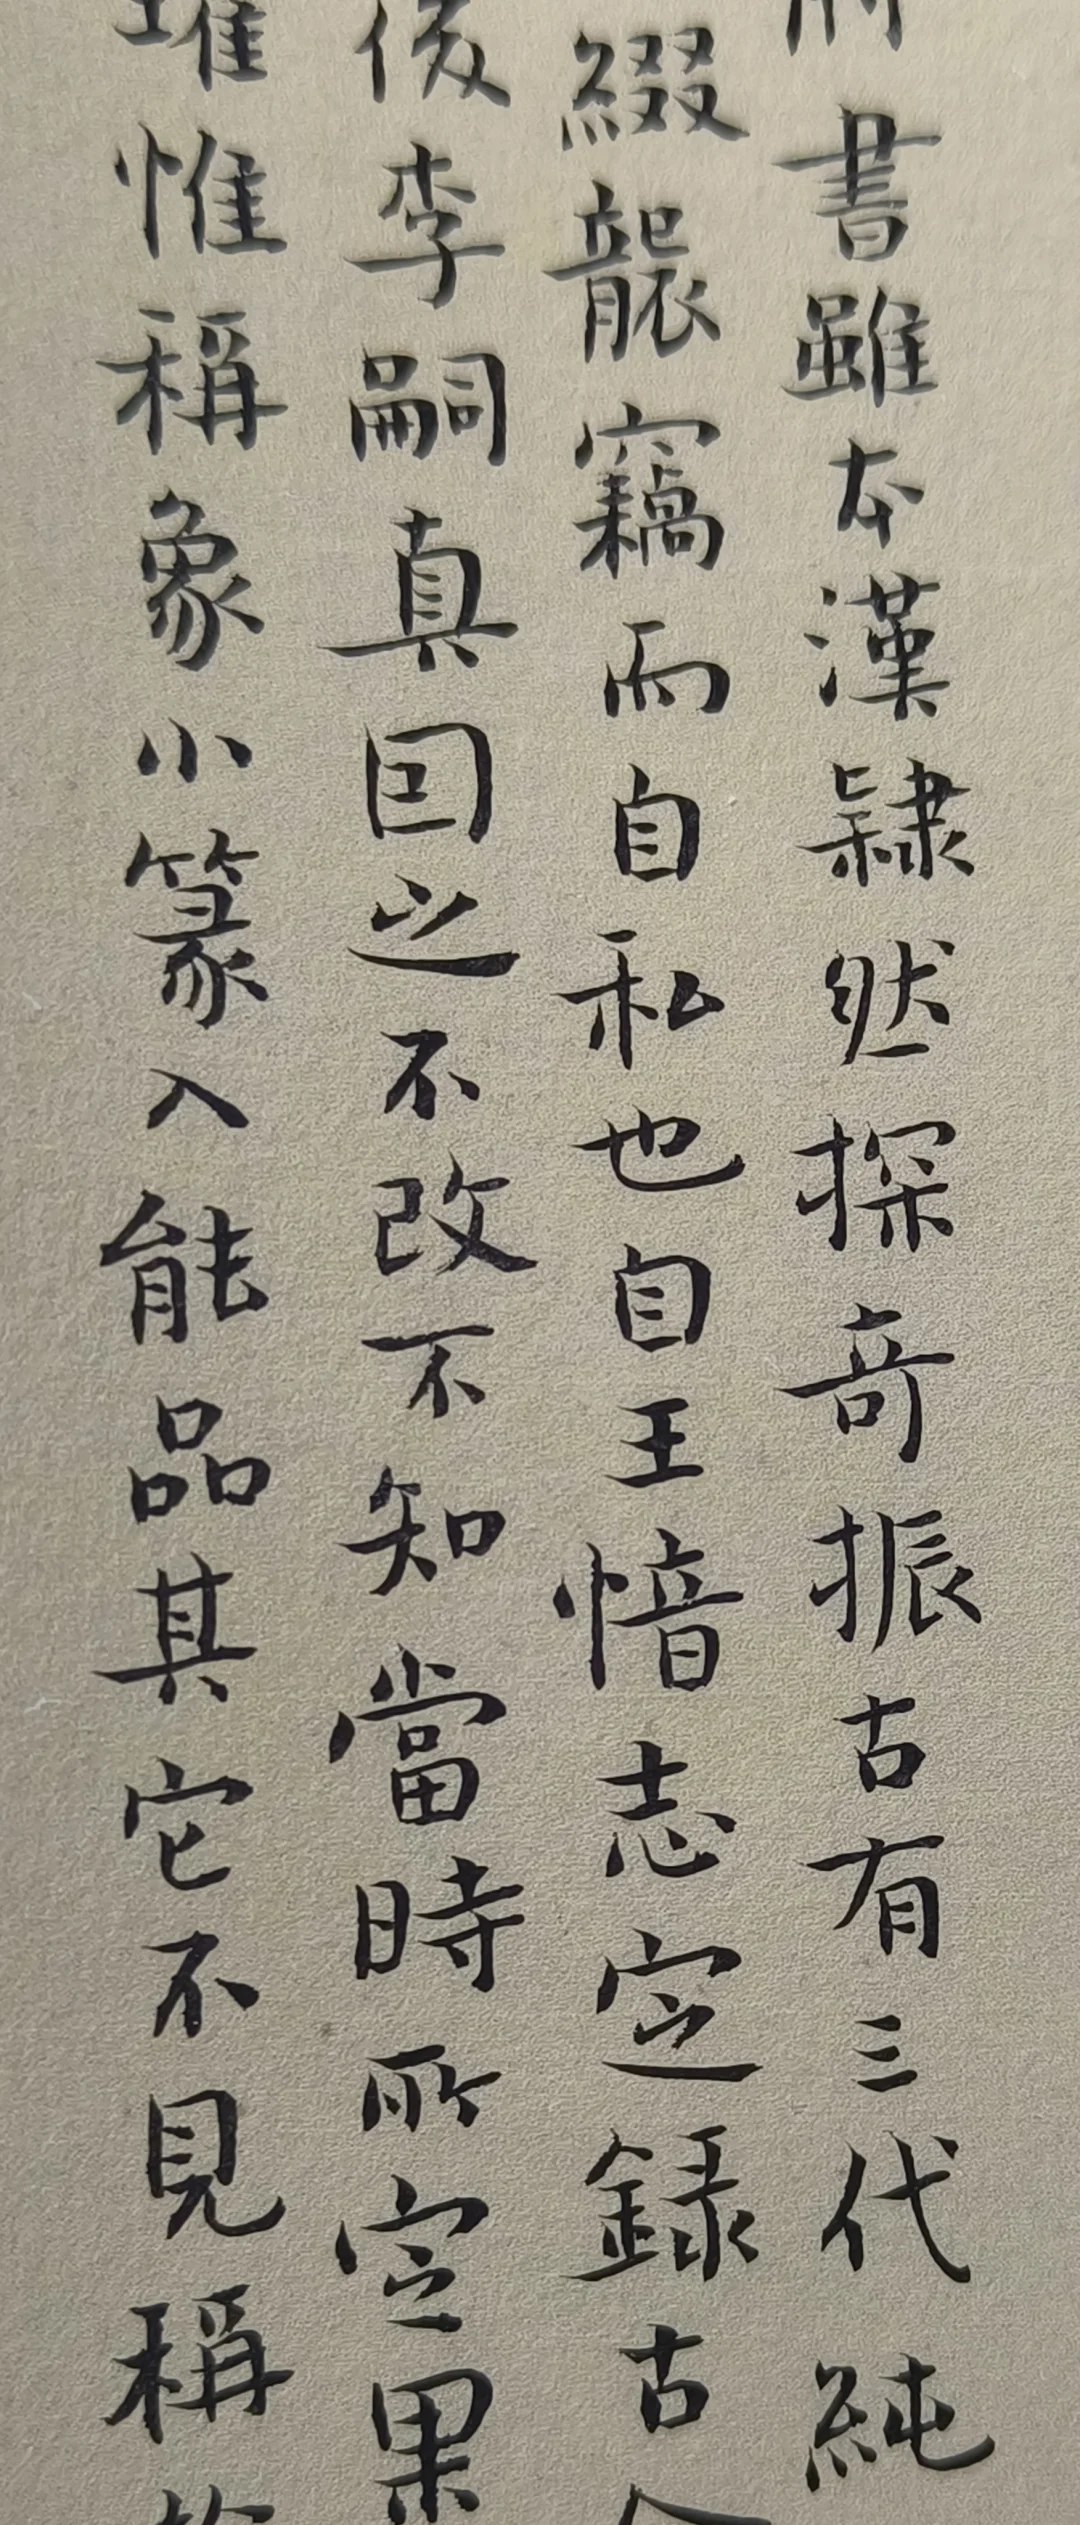 書雖本漢隷然探竒振古有三代純
綴龍竊而自私也自王愔志定錄古
後李嗣真囙之不改不知當時所定果
惟稱象小篆入能品其它不見稱